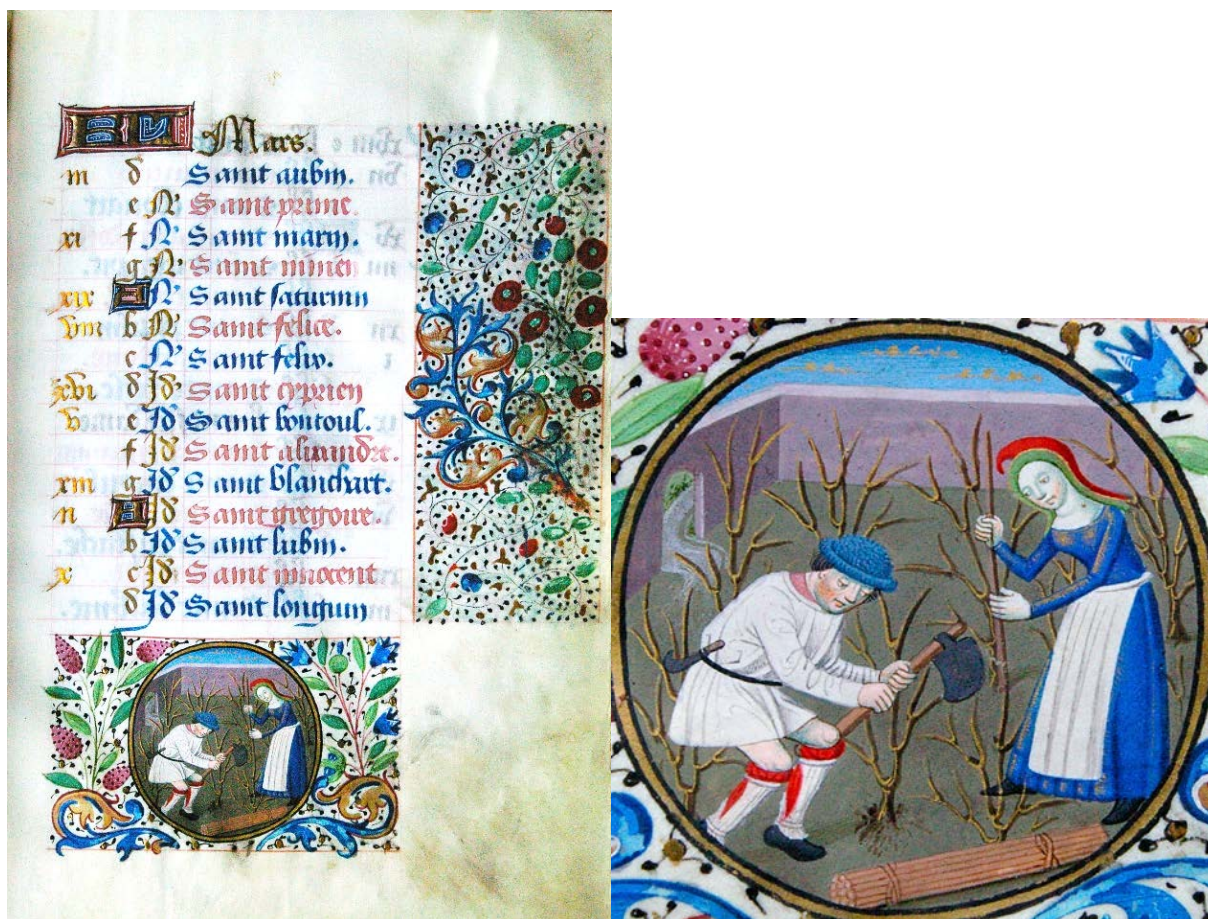 KL Mars.
iii d Saint aubin.
e N Saint prime.
xi f N Saint marin.
g N Saint
xix A N Saint saturnin
viii b N Saint felice.
c N Saint felix.
xvi d Id Saint cyprien
v e Id Saint bontoul.
f Id Saint alixandre.
xiii g Id Saint blanchart.
ii A Id Saint gregoire.
b Id Saint lubin.
x c Id Saint innocent
d Id Saint longuin